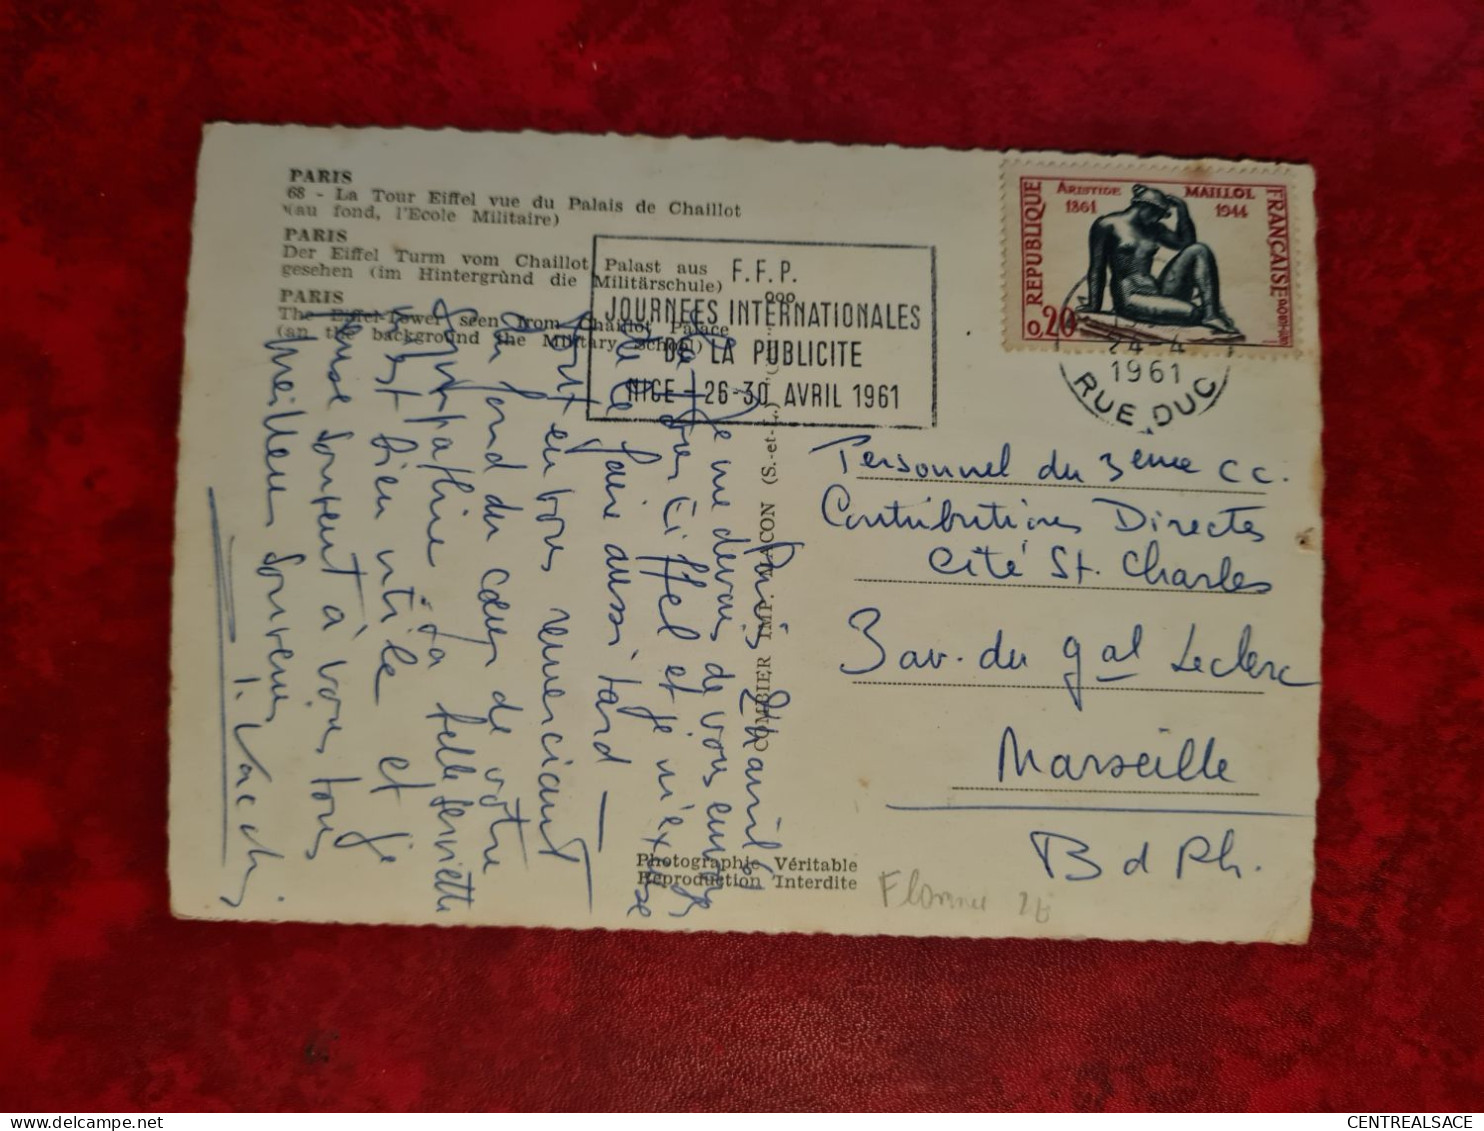 PARIS
68 - La Tour Eiffel vue du Palais de Chaillot
(au fond, l'Ecole Militaire)
PARIS
Der Eiffel Turm vom Chaillot Palast aus
gesehen (im Hintergrùnd die Militärschule)
PARIS
The Eiffel-Tower seen from Chaillot Palace
(an the background the Military School)
F.F.P.
JOURNEES INTERNATIONALES
DE LA PUBLICITE
NICE - 26-30 AVRIL 1961
ARISTIDE MAILLOL
1861 1944
REPUBLIQUE
FRANÇAISE
0,20
24-4
1961
RUE DUC
Personnel du 3eme CC.
Contributions Directes
Cité St. Charles
3 av. du Gal Leclerc
Marseille
B d Rh.
COMBIER IMP. MACON (S.-et-L.)
Paris 24 avril 61
Je me devais de vous envoyer
la Tour Eiffel et je m'excuse
de le faire aussi tard —
tout en vous remerciant
du fond du cœur de votre
sympathie. La belle serviette
m'est bien utile et je
pense souvent à vous tous
meilleurs souvenirs
Photographie Véritable
Reproduction Interdite
CENTREALSACE